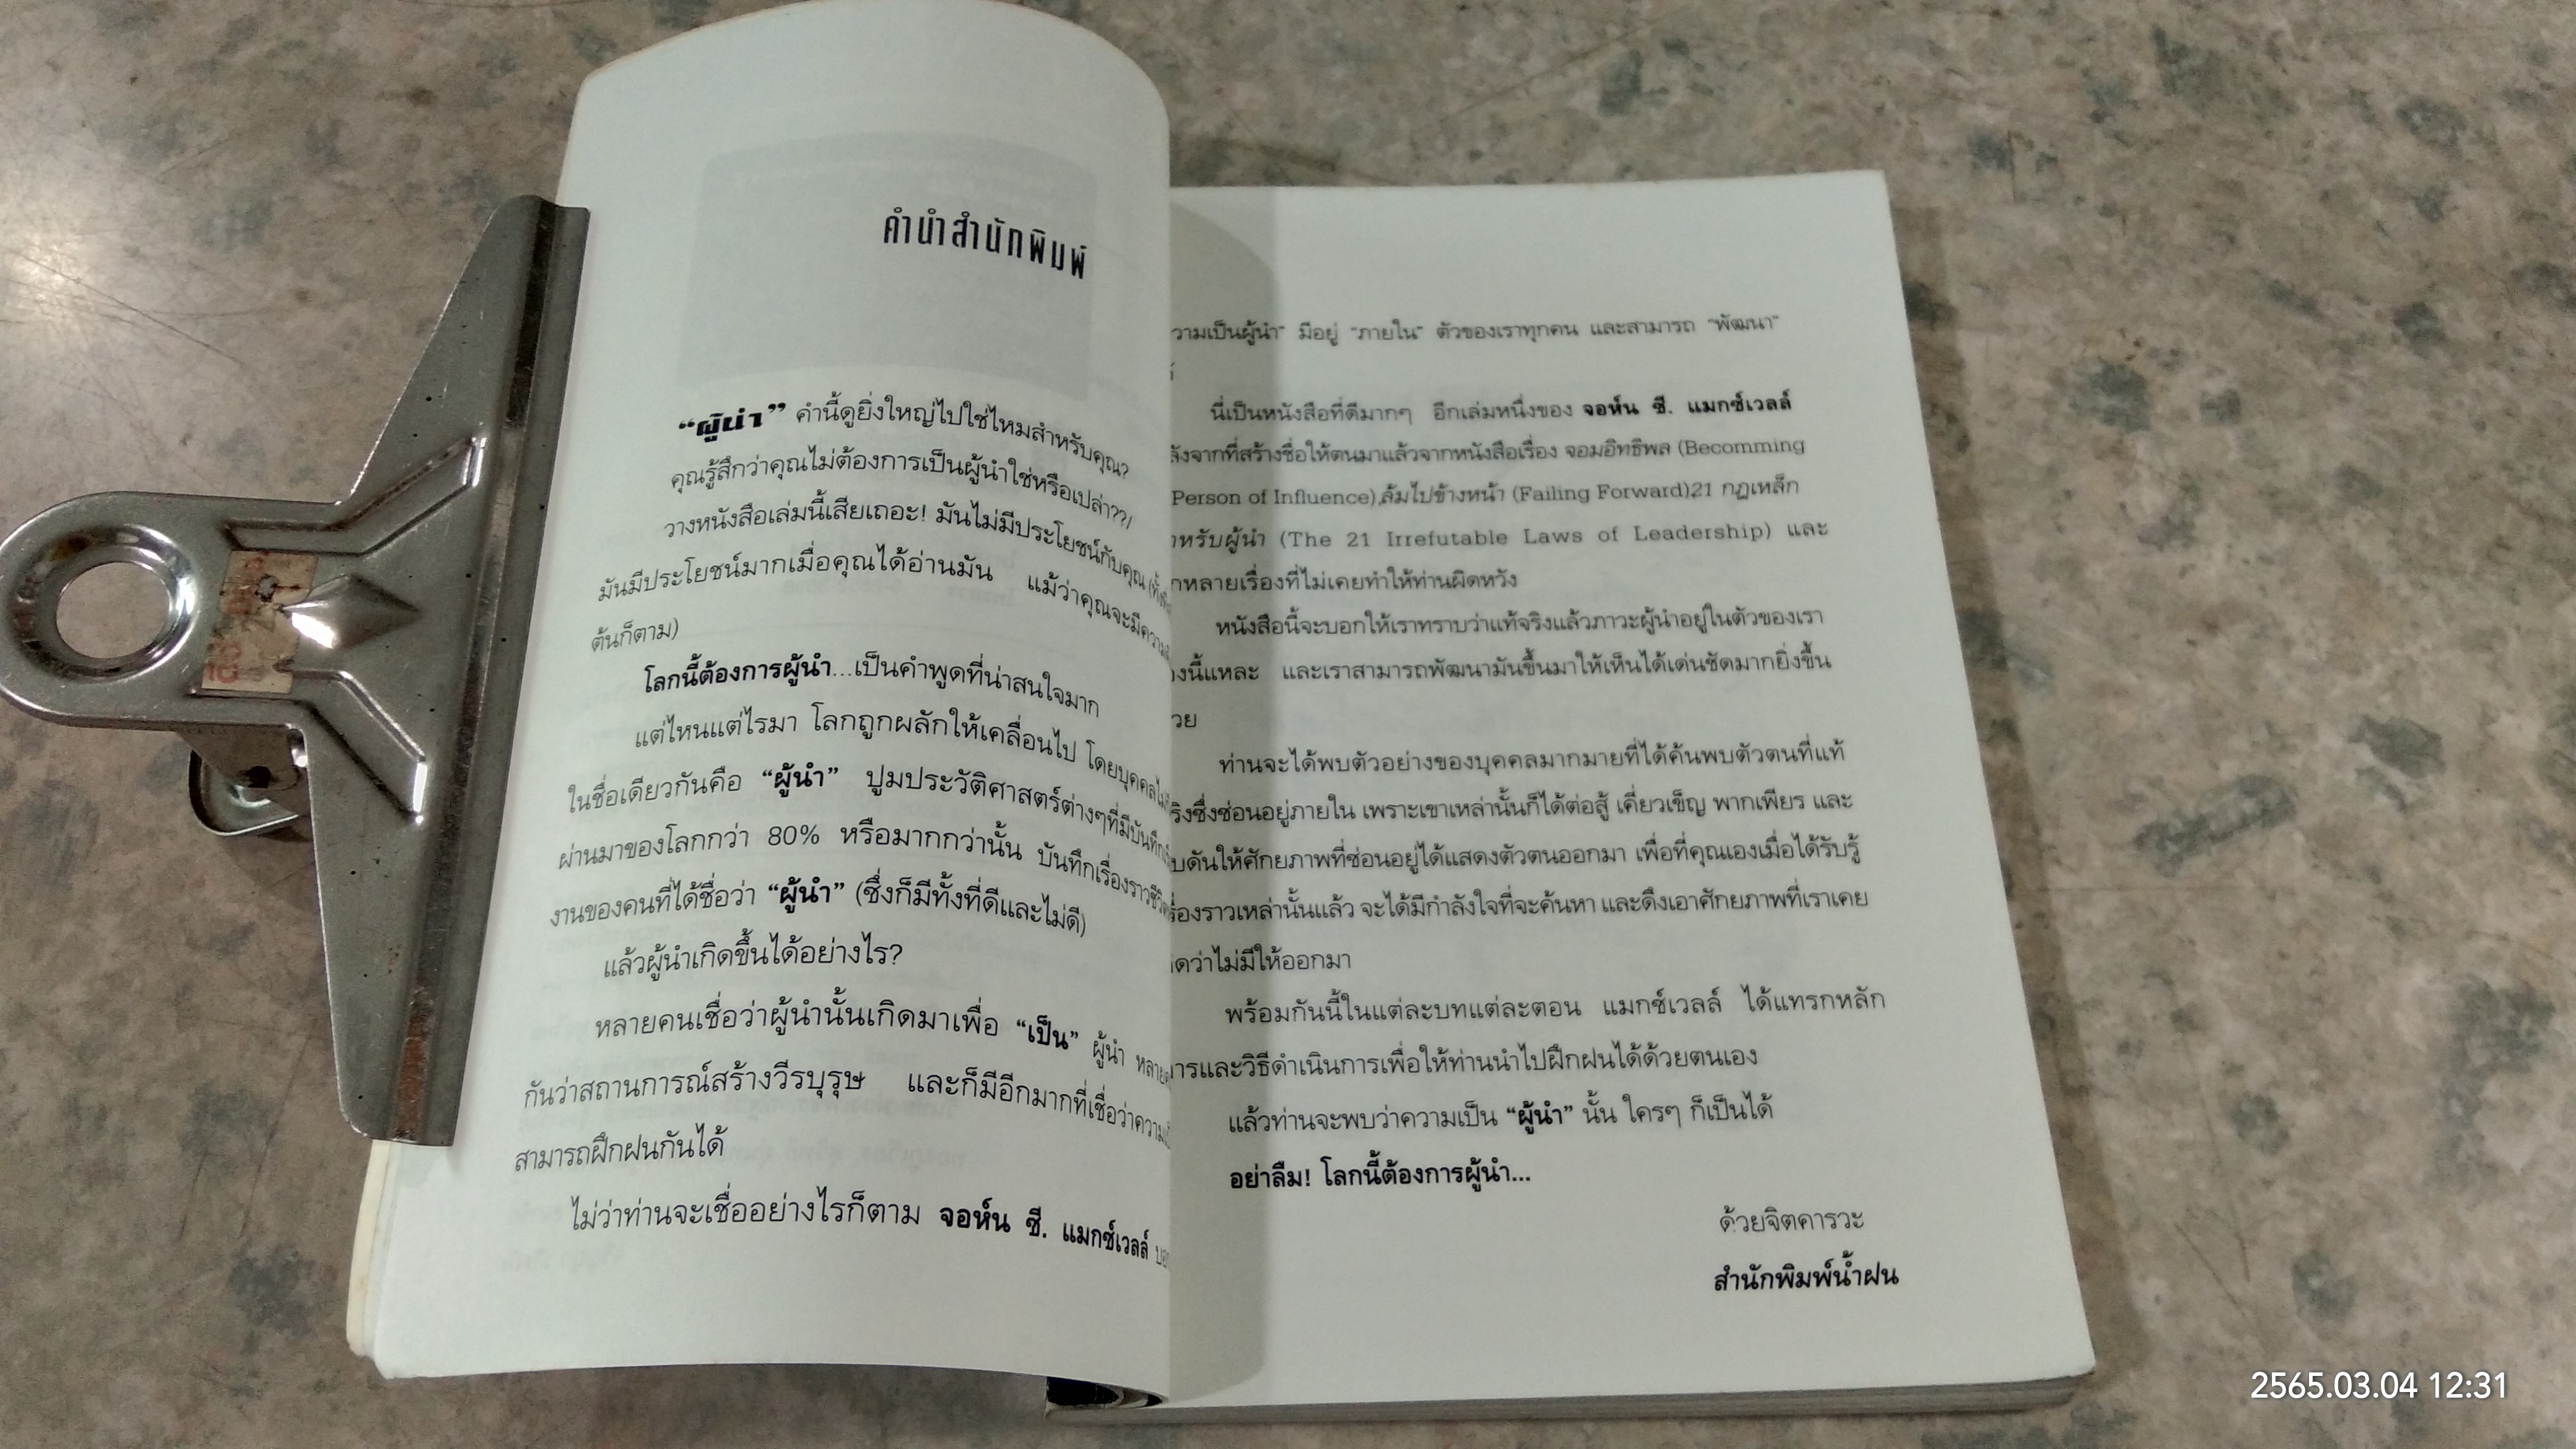 คำนำสำนักพิมพ์
“ผู้นำ” คำนี้ดูยิ่งใหญ่ไปใช่ไหมสำหรับคุณ?
คุณรู้สึกว่าคุณไม่ต้องการเป็นผู้นำใช่หรือเปล่า??/
วางหนังสือเล่มนี้เสียเถอะ! มันไม่มีประโยชน์กับคุณ
มันมีประโยชน์มากเมื่อคุณได้อ่านมัน แม้ว่าคุณจะมี
ต้นก็ตาม)
โลกนี้ต้องการผู้นำ...เป็นคำพูดที่น่าสนใจมาก
แต่ไหนแต่ไรมา โลกถูกผลักให้เคลื่อนไป โดยบุคคล
ในชื่อเดียวกันคือ “ผู้นำ” ปูมประวัติศาสตร์ต่างๆที่มีบันทึก
ผ่านมาของโลกกว่า 80% หรือมากกว่านั้น บันทึกเรื่องราวชีวิต
งานของคนที่ได้ชื่อว่า “ผู้นำ” (ซึ่งก็มีทั้งที่ดีและไม่ดี)
แล้วผู้นำเกิดขึ้นได้อย่างไร?
หลายคนเชื่อว่าผู้นำนั้นเกิดมาเพื่อ “เป็น” ผู้นำ
กันว่าสถานการณ์สร้างวีรบุรุษ และก็มีอีกมากที่เชื่อว่าความ
สามารถฝึกฝนกันได้
ไม่ว่าท่านจะเชื่ออย่างไรก็ตาม จอห์น ซี. แมกซ์เวลล์
วามเป็นผู้นำ” มีอยู่ “ภายใน” ตัวของเราทุกคน และสามารถ “พัฒนา”
นี่เป็นหนังสือที่ดีมากๆ อีกเล่มหนึ่งของ จอห์น ซี. แมกซ์เวลล์
ลังจากที่สร้างชื่อให้ตนมาแล้วจากหนังสือเรื่อง จอมอิทธิพล (Becomming
Person of Influence),ล้มไปข้างหน้า (Failing Forward)21 กฎเหล็ก
าหรับผู้นำ (The 21 Irrefutable Laws of Leadership) และ
กหลายเรื่องที่ไม่เคยทำให้ท่านผิดหวัง
หนังสือนี้จะบอกให้เราทราบว่าแท้จริงแล้วภาวะผู้นำอยู่ในตัวของเรา
องนี้แหละ และเราสามารถพัฒนามันขึ้นมาให้เห็นได้เด่นชัดมากยิ่งขึ้น
วย
ท่านจะได้พบตัวอย่างของบุคคลมากมายที่ได้ค้นพบตัวตนที่แท้
ริงซึ่งซ่อนอยู่ภายใน เพราะเขาเหล่านั้นก็ได้ต่อสู้ เคี่ยวเข็ญ พากเพียร และ
บดันให้ศักยภาพที่ซ่อนอยู่ได้แสดงตัวตนออกมา เพื่อที่คุณเองเมื่อได้รับรู้
รื่องราวเหล่านั้นแล้ว จะได้มีกำลังใจที่จะค้นหา และดึงเอาศักยภาพที่เราเคย
ิดว่าไม่มีให้ออกมา
พร้อมกันนี้ในแต่ละบทแต่ละตอน แมกซ์เวลล์ ได้แทรกหลัก
ารและวิธีดำเนินการเพื่อให้ท่านนำไปฝึกฝนได้ด้วยตนเอง
แล้วท่านจะพบว่าความเป็น “ผู้นำ” นั้น ใครๆ ก็เป็นได้
อย่าลืม! โลกนี้ต้องการผู้นำ...
ด้วยจิตคารวะ
สำนักพิมพ์น้ำฝน
2565.03.04 12:31